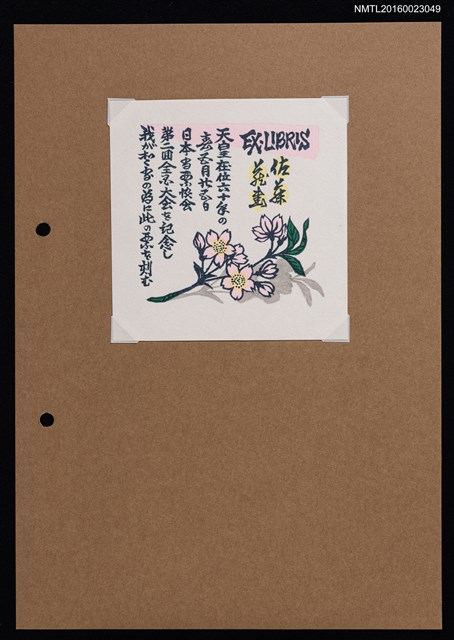 NMTL20160023049
EX·LIBRIS
佐藤
蔵書
天皇在位六十年の
日本書票協会
第二回全国大会を記念し
我が和々家の為に此の票を刻む